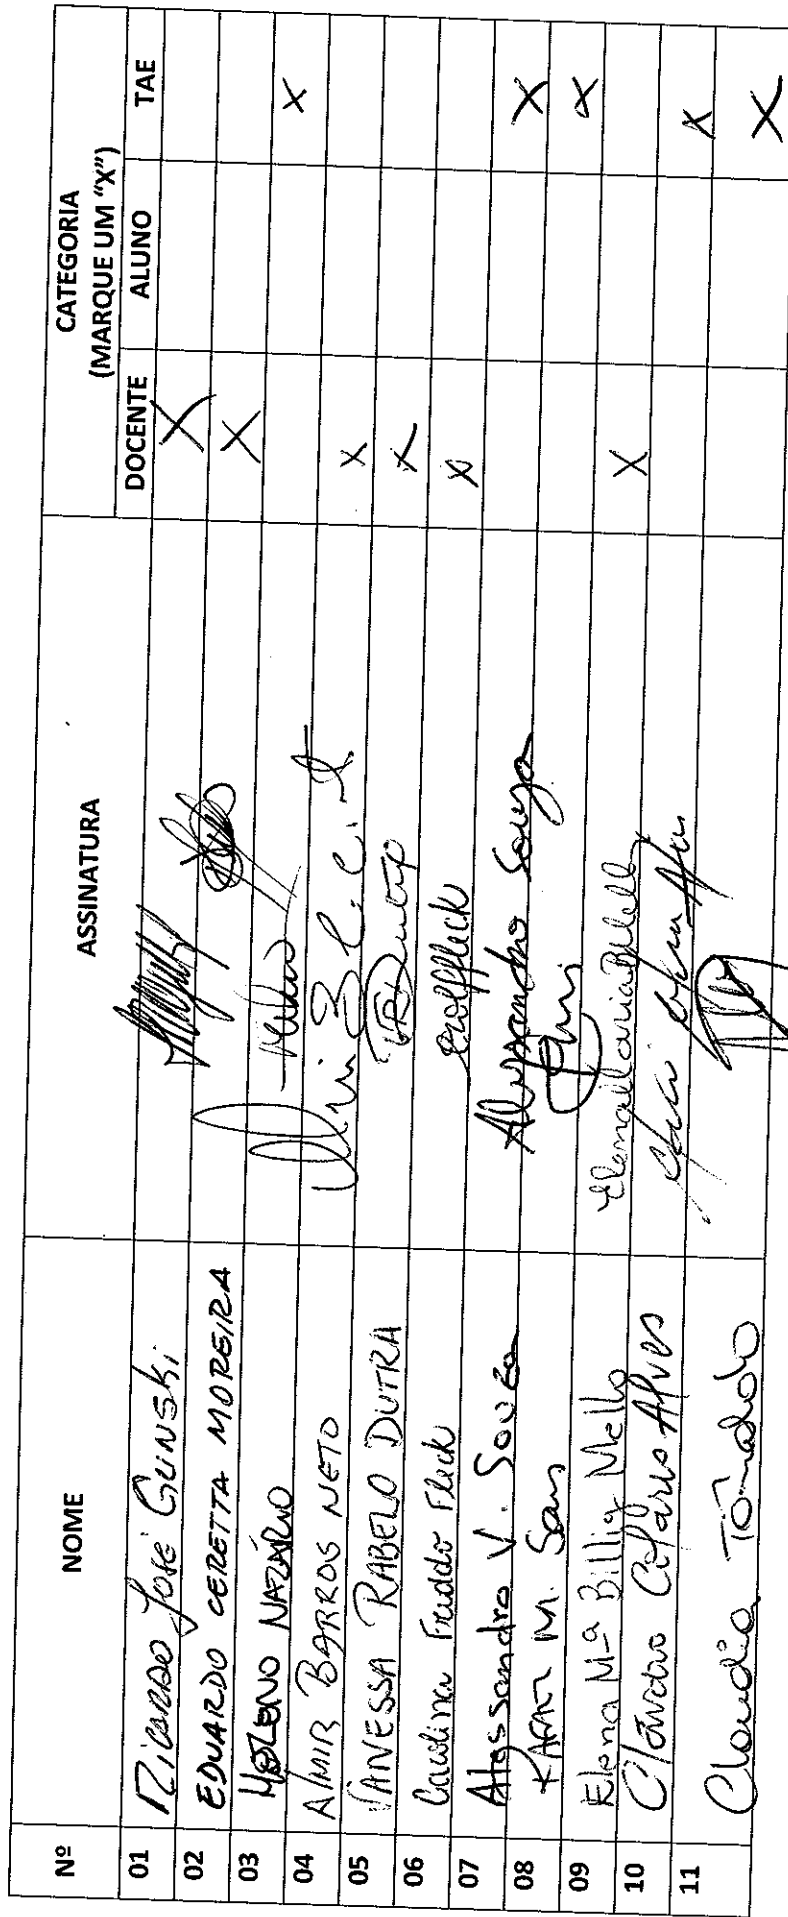 Nº NOME ASSINATURA CATEGORIA (MARQUE UM "X")
DOCENTE ALUNO TAE
01 Ricardo José Gunski X
02 EDUARDO CERETTA MOREIRA X
03 NAZÁRIO X
04 ALMIR BARROS NETO X
05 VANESSA RABELO DUTRA X
06 Carolina Freddo Fleck X
07 Alessandro V. Souza Alessandro Souza X
08 RAFAEL M. X
09 Elena Mª Billig Mello Elena Maria Billig X
10 Cláudio Alves X
11 Claudia X